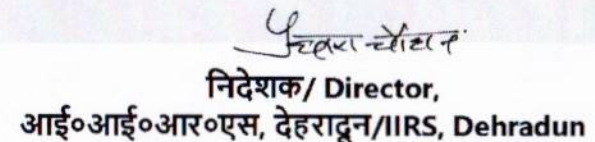 चौहान
निदेशक/ Director,
आई०आई०आर०एस, देहरादून/IIRS, Dehradun